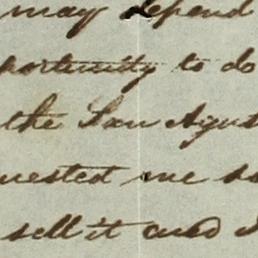 may depend
portunity to do
the San Agus
uested me to
sell it and